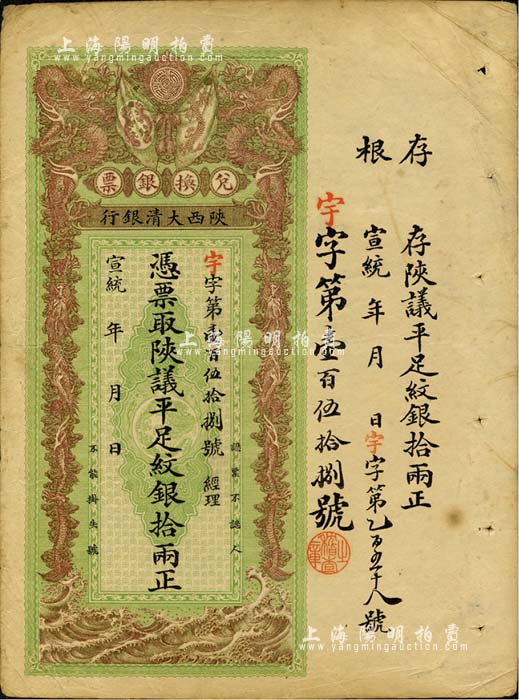 上海陽明拍賣
www.yangmingauction.com
存根
存陝議平足紋銀拾兩正
宣統 年 月 日宇字第乙百五十八號
宇字第壹百伍拾捌號
兌換銀票
陝西大清銀行
認票不認人
宇字第壹百伍拾捌號 經理
憑票取陝議平足紋銀拾兩正
宣統 年 月 日
不能掛失號
上海陽明拍賣
www.yangmingauction.com
上海陽明拍賣
www.yangmingauction.com